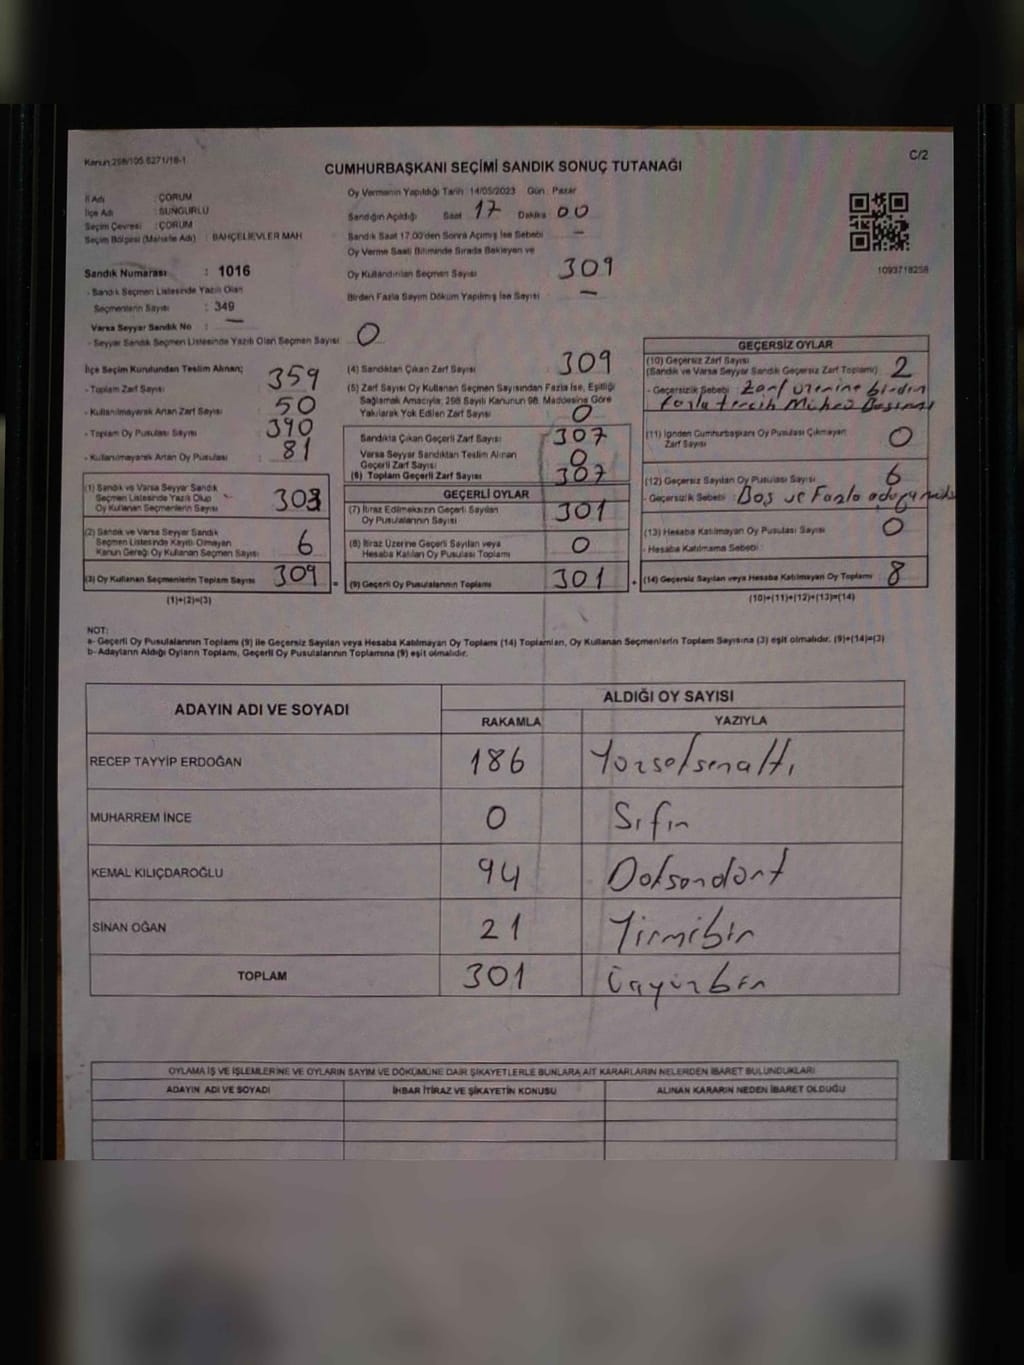 Kanun:298/105.6271/18-1
C/2
CUMHURBAŞKANI SEÇİMİ SANDIK SONUÇ TUTANAĞI
İl Adı : ÇORUM
İlçe Adı : SUNGURLU
Seçim Çevresi : ÇORUM
Seçim Bölgesi (Mahalle Adı) : BAHÇELİEVLER MAH
Sandık Numarası : 1016
- Sandık Seçmen Listesinde Yazılı Olan
Seçmenlerin Sayısı : 349
Varsa Seyyar Sandık No : —
- Seyyar Sandık Seçmen Listesinde Yazılı Olan Seçmen Sayısı 0
Oy Vermenin Yapıldığı Tarih : 14/05/2023 Gün : Pazar
Sandığın Açıldığı Saat 17 Dakika 00
Sandık Saat 17.00'den Sonra Açılmış İse Sebebi —
Oy Verme Saati Bitiminde Sırada Bekleyen ve
Oy Kullandırılan Seçmen Sayısı 309
Birden Fazla Sayım Döküm Yapılmış İse Sayısı —
1093718258
İlçe Seçim Kurulundan Teslim Alınan;
- Toplam Zarf Sayısı : 359
- Kullanılmayarak Artan Zarf Sayısı : 50
- Toplam Oy Pusulası Sayısı : 390
- Kullanılmayarak Artan Oy Pusulası : 81
(1) Sandık ve Varsa Seyyar Sandık
Seçmen Listesinde Yazılı Olup
Oy Kullanan Seçmenlerin Sayısı 303
(2) Sandık ve Varsa Seyyar Sandık
Seçmen Listesinde Kayıtlı Olmayan
Kanun Gereği Oy Kullanan Seçmen Sayısı 6
(3) Oy Kullanan Seçmenlerin Toplam Sayısı 309
(1)+(2)=(3)
(4) Sandıktan Çıkan Zarf Sayısı : 309
(5) Zarf Sayısı Oy Kullanan Seçmen Sayısından Fazla İse, Eşitliği
Sağlamak Amacıyla, 298 Sayılı Kanunun 98. Maddesine Göre
Yakılarak Yok Edilen Zarf Sayısı 0
Sandıkta Çıkan Geçerli Zarf Sayısı : 307
Varsa Seyyar Sandıktan Teslim Alınan
Geçerli Zarf Sayısı : 0
(6) Toplam Geçerli Zarf Sayısı : 307
GEÇERLİ OYLAR
(7) İtiraz Edilmeksizin Geçerli Sayılan
Oy Pusulalarının Sayısı 301
(8) İtiraz Üzerine Geçerli Sayılan veya
Hesaba Katılan Oy Pusulası Toplamı 0
= (9) Geçerli Oy Pusulalarının Toplamı 301
GEÇERSİZ OYLAR
(10) Geçersiz Zarf Sayısı
(Sandık ve Varsa Seyyar Sandık Geçersiz Zarf Toplamı) : 2
- Geçersizlik Sebebi : Zarf üzerine birden
fazla tercih Mührü Basılması
(11) İçinden Cumhurbaşkanı Oy Pusulası Çıkmayan
Zarf Sayısı 0
(12) Geçersiz Sayılan Oy Pusulası Sayısı 6
- Geçersizlik Sebebi : Boş ve Fazla
(13) Hesaba Katılmayan Oy Pusulası Sayısı 0
- Hesaba Katılmama Sebebi :
+ (14) Geçersiz Sayılan veya Hesaba Katılmayan Oy Toplamı 8
(10)+(11)+(12)+(13)=(14)
NOT:
a- Geçerli Oy Pusulalarının Toplamı (9) ile Geçersiz Sayılan veya Hesaba Katılmayan Oy Toplamı (14) Toplamları, Oy Kullanan Seçmenlerin Toplam Sayısına (3) eşit olmalıdır. (9)+(14)=(3)
b- Adayların Aldığı Oyların Toplamı, Geçerli Oy Pusulalarının Toplamına (9) eşit olmalıdır.
ADAYIN ADI VE SOYADI ALDIĞI OY SAYISI
RAKAMLA YAZIYLA
RECEP TAYYİP ERDOĞAN 186 Yüzseksenaltı
MUHARREM İNCE 0 Sıfır
KEMAL KILIÇDAROĞLU 94 Doksandört
SİNAN OĞAN 21 Yirmibir
TOPLAM 301 Üçyüzbir
OYLAMA İŞ VE İŞLEMLERİNE VE OYLARIN SAYIM VE DÖKÜMÜNE DAİR ŞİKAYETLERLE BUNLARA AİT KARARLARIN NELERDEN İBARET BULUNDUKLARI
ADAYIN ADI VE SOYADI İHBAR İTİRAZ VE ŞİKAYETİN KONUSU ALINAN KARARIN NEDEN İBARET OLDUĞU